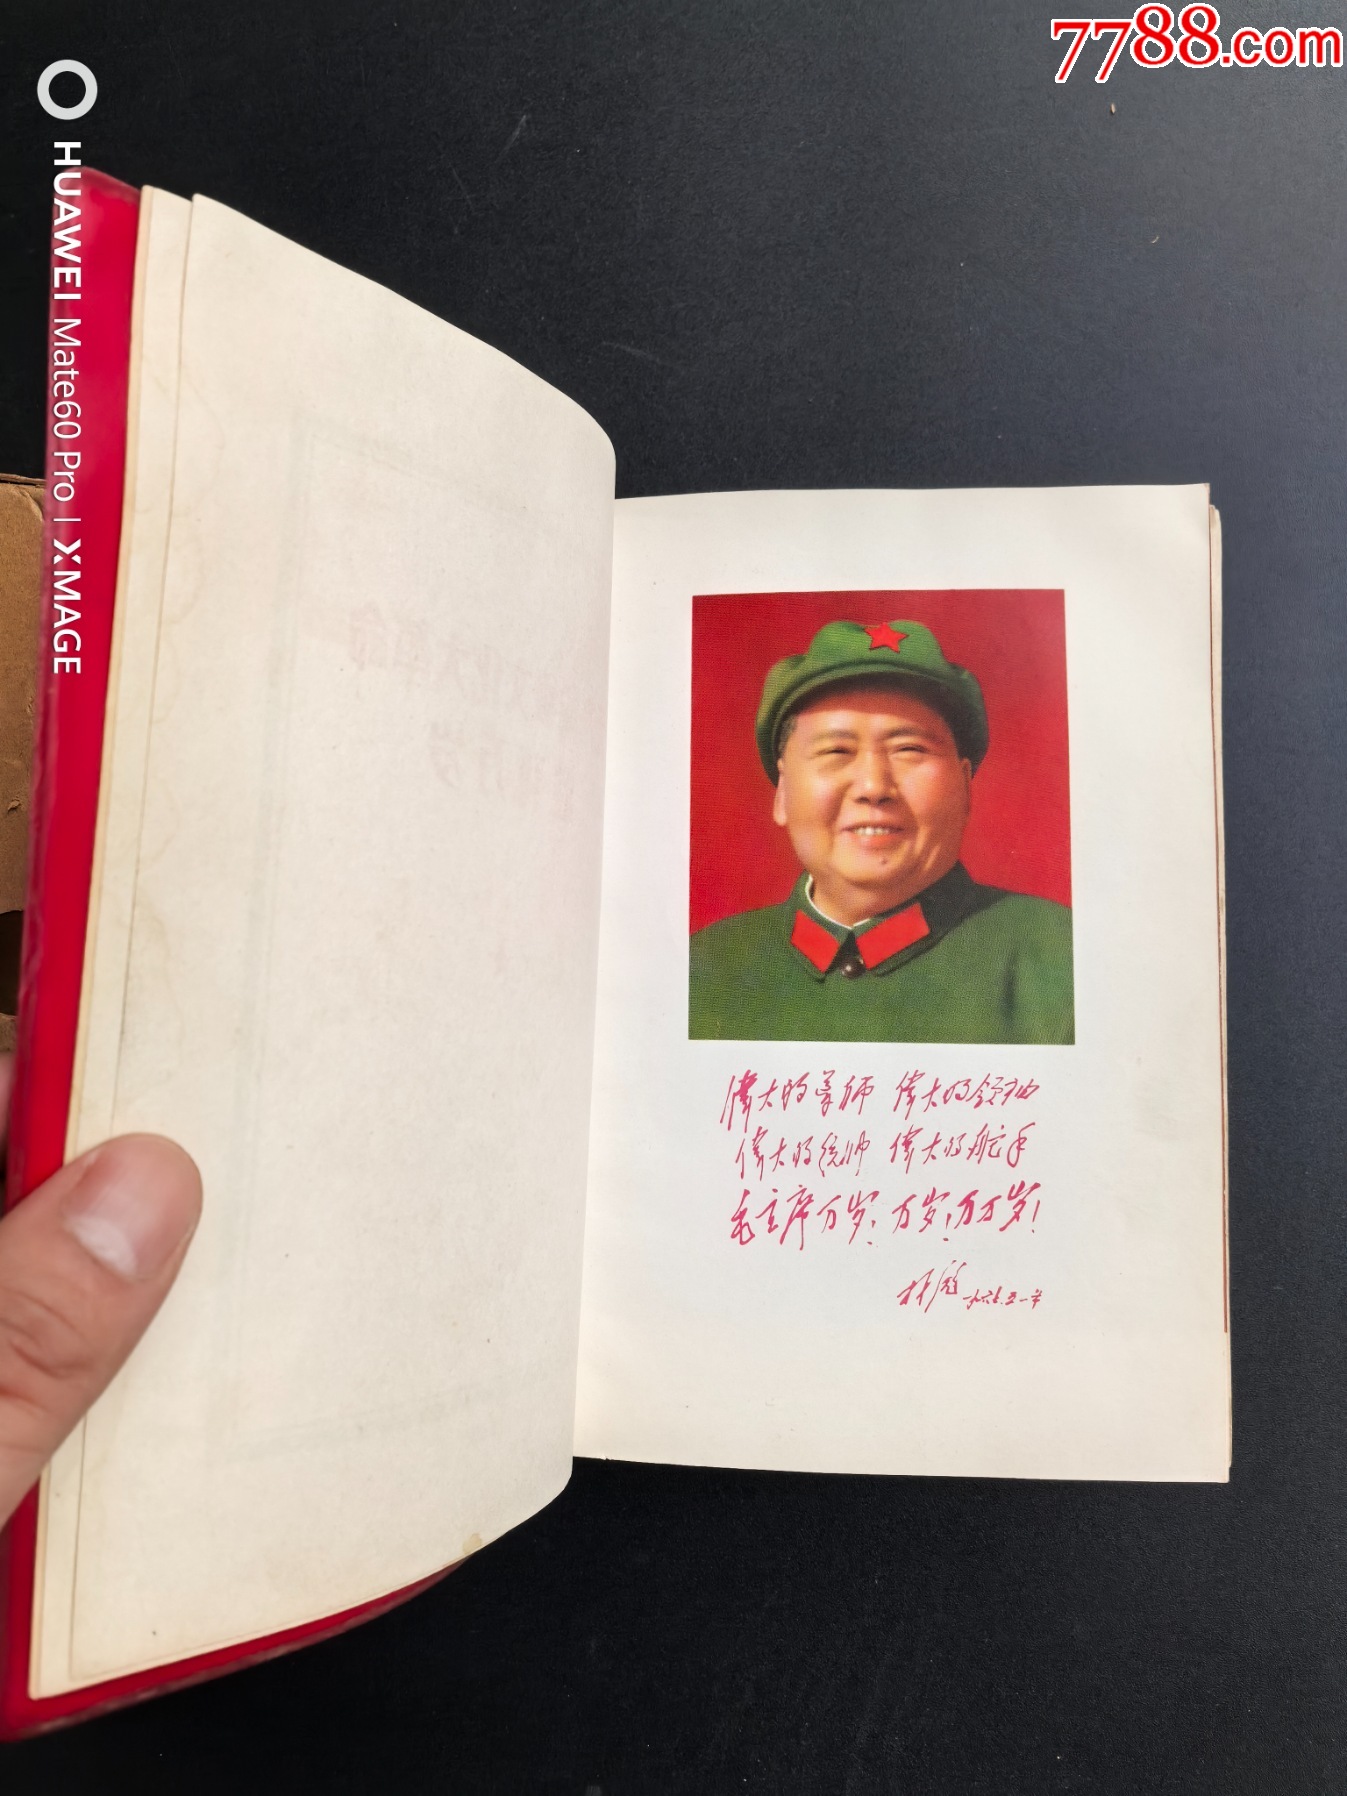 7788.com
HUAWEI Mate60 Pro | XMAGE
偉大的导师 偉大的领袖
偉大的统帅 偉大的舵手
毛主席万岁！万岁！万万岁！
林彪 一九六七.五一节